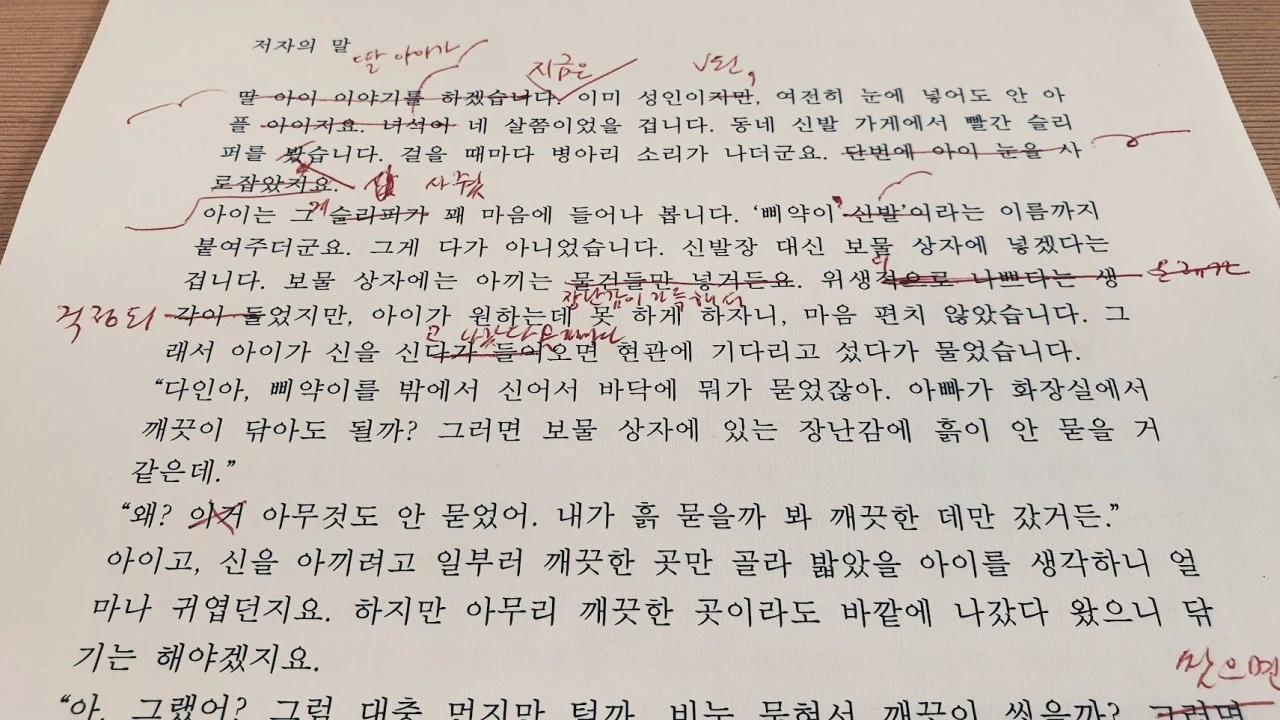 저자의 말
딸 아이가
지금은
된,
딸 아이 이야기를 하겠습니다. 이미 성인이지만, 여전히 눈에 넣어도 안 아
플 아이지요. 녀석이 네 살쯤이었을 겁니다. 동네 신발 가게에서 빨간 슬리
퍼를 봤습니다. 걸을 때마다 병아리 소리가 나더군요. 단번에 아이 눈을 사
로잡았지요.
사줬
아이는 그 슬리퍼가 꽤 마음에 들어나 봅니다. ‘삐약이 신발’이라는 이름까지
게
붙여주더군요. 그게 다가 아니었습니다. 신발장 대신 보물 상자에 넣겠다는
겁니다. 보물 상자에는 아끼는 물건들만 넣거든요. 위생적으로 나쁘다는 생
장난감이 가득해서
걱정되
각이 들었지만, 아이가 원하는데 못 하게 하자니, 마음 편치 않았습니다. 그
고 나갔다 올 때마다
래서 아이가 신을 신다가 들어오면 현관에 기다리고 섰다가 물었습니다.
“다인아, 삐약이를 밖에서 신어서 바닥에 뭐가 묻었잖아. 아빠가 화장실에서
깨끗이 닦아도 될까? 그러면 보물 상자에 있는 장난감에 흙이 안 묻을 거
같은데.”
“왜? 이거 아무것도 안 묻었어. 내가 흙 묻을까 봐 깨끗한 데만 갔거든.”
아이고, 신을 아끼려고 일부러 깨끗한 곳만 골라 밟았을 아이를 생각하니 얼
마나 귀엽던지요. 하지만 아무리 깨끗한 곳이라도 바깥에 나갔다 왔으니 닦
기는 해야겠지요.
“아, 그랬어? 그럼 대충 먼지만 털까, 비누 묻혀서 깨끗이 씻을까? 그러면